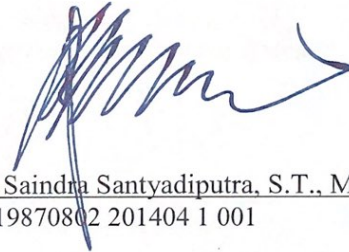 Saindra Santyadiputra, S.T., M
19870802 201404 1 001